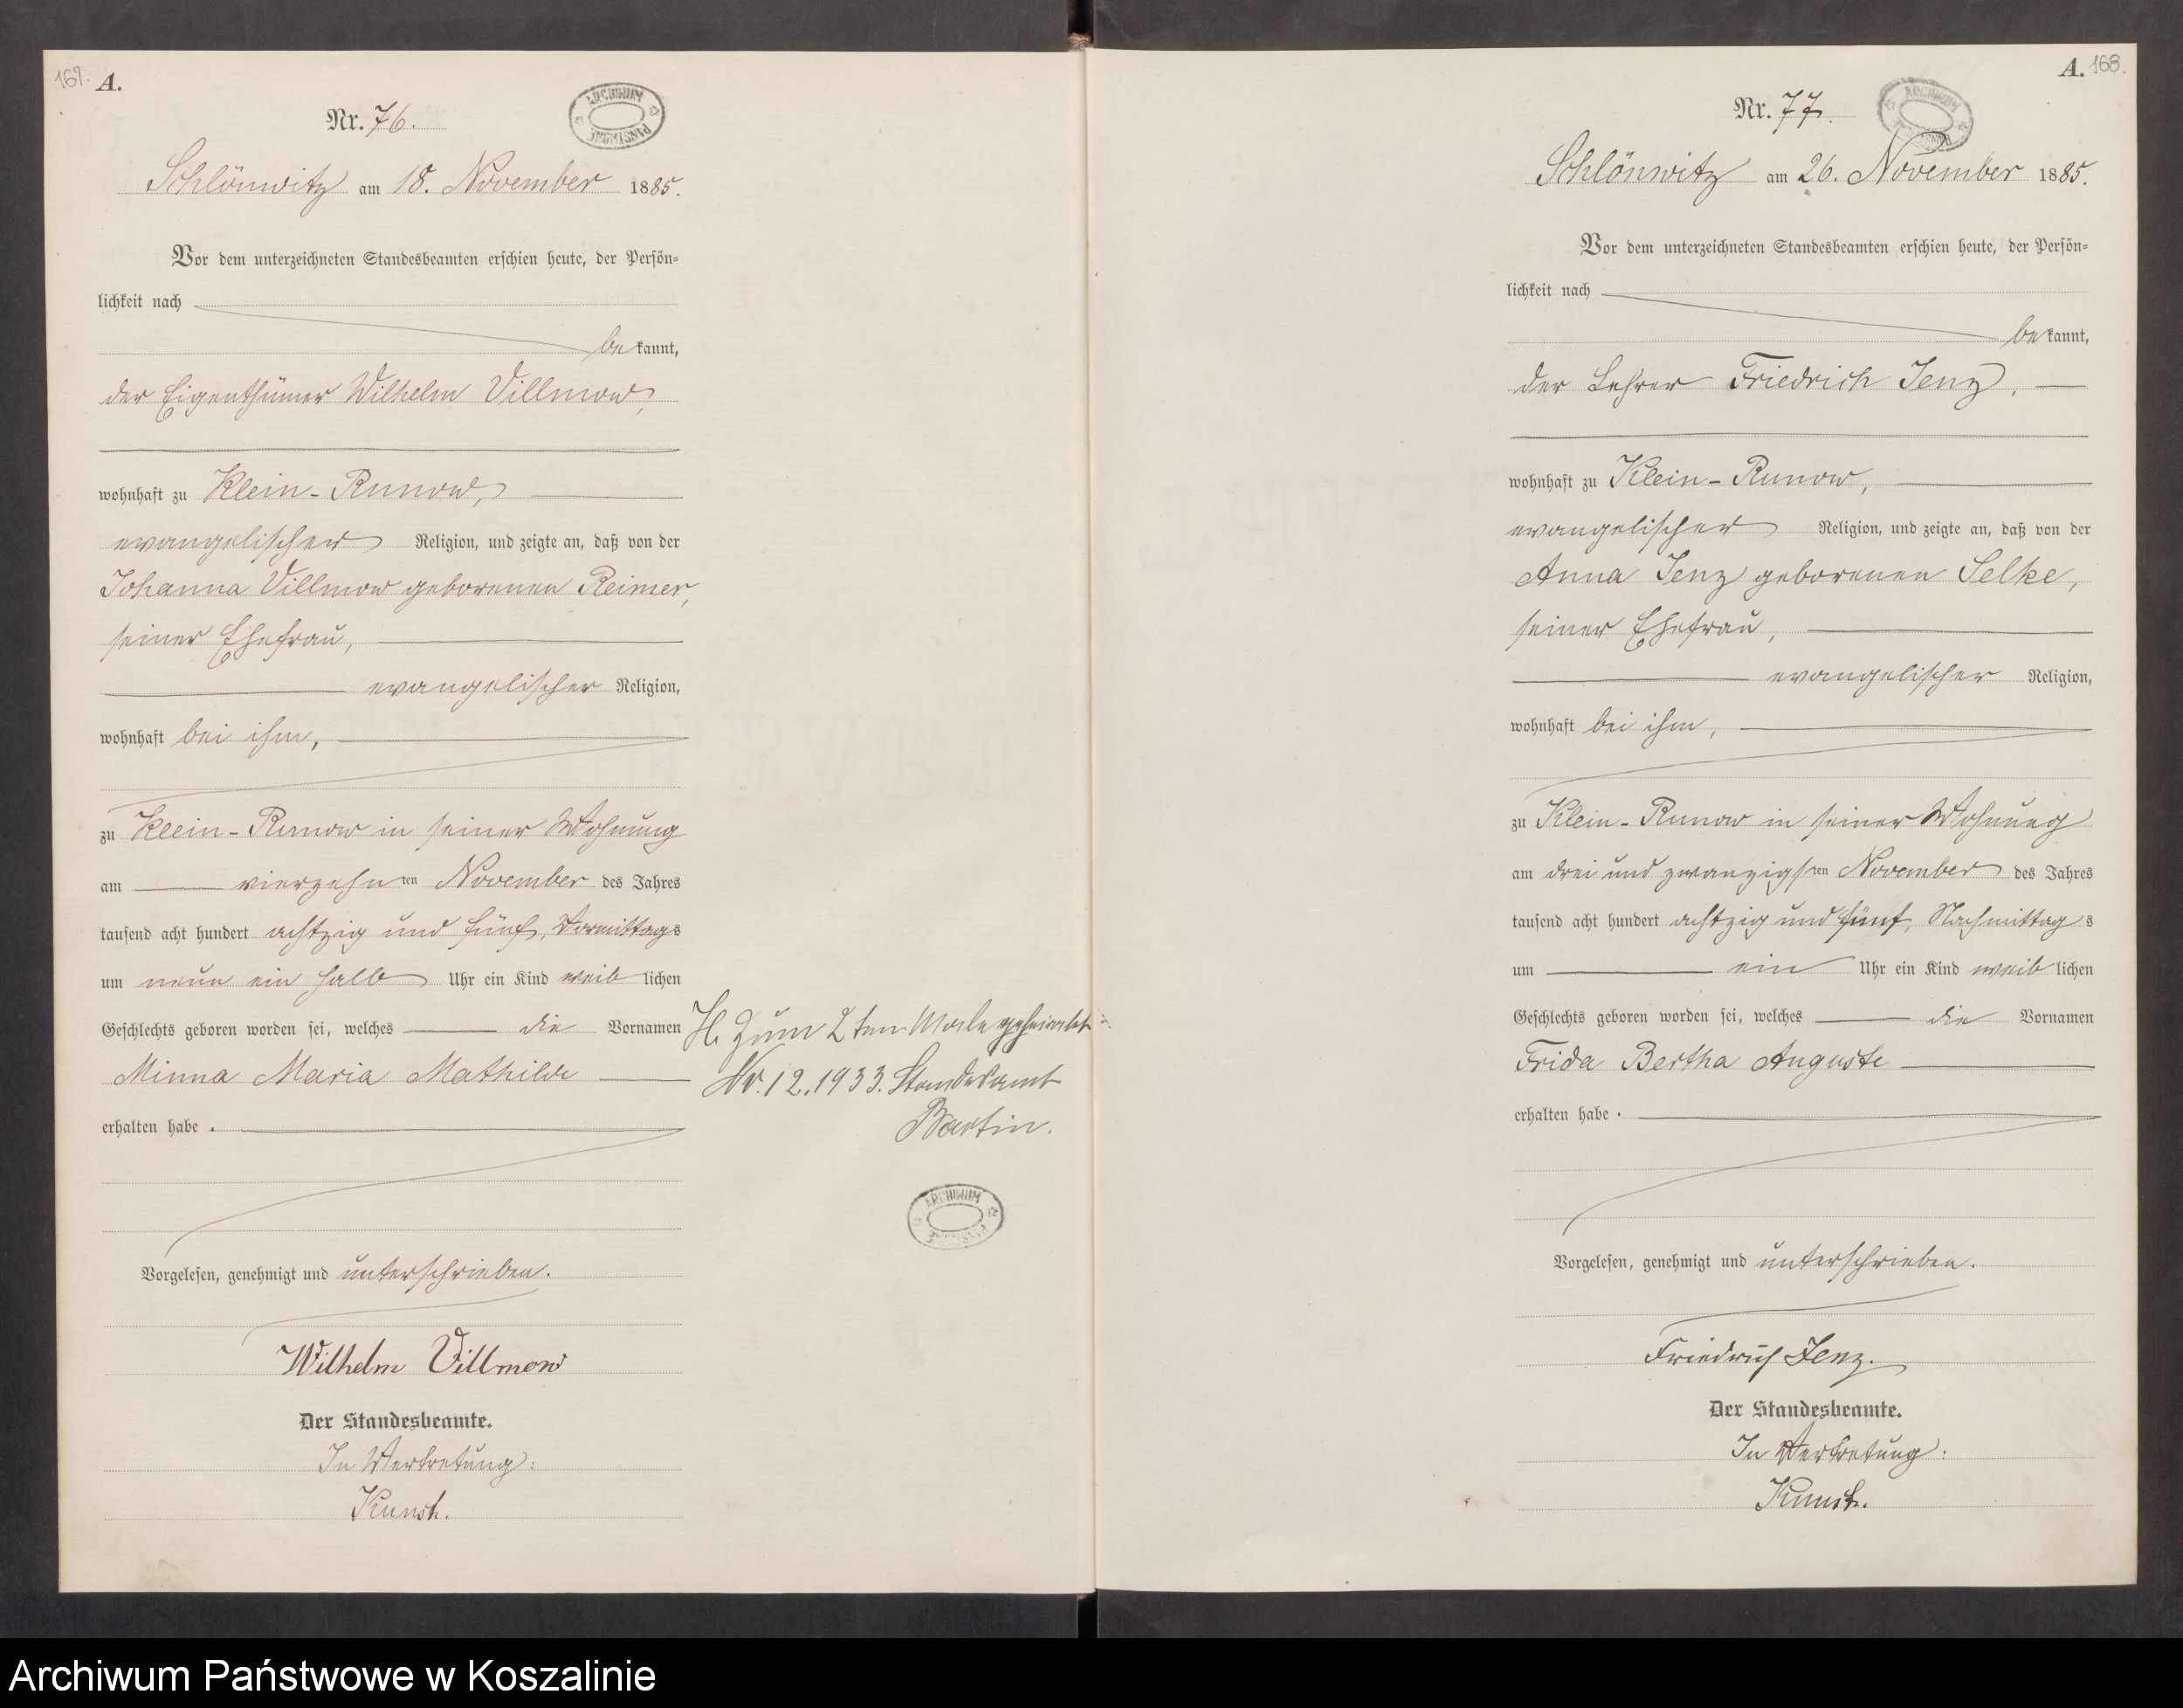 167.
A.
Nr. 76.
ARCHIWUM PAŃSTWOWE
Schlönwitz am 18. November 1885.
Vor dem unterzeichneten Standesbeamten erschien heute, der Persön-
lichkeit nach
bekannt,
der Eigenthümer Wilhelm Villmow,
wohnhaft zu Klein-Runow,
evangelischer Religion, und zeigte an, daß von der
Johanna Villmow geborenen Reimer,
seiner Ehefrau,
evangelischer Religion,
wohnhaft bei ihm,
zu Klein-Runow in seiner Wohnung
am vierzehnten November des Jahres
tausend acht hundert achtzig und fünf, Vormittags
um neun ein halb Uhr ein Kind weiblichen
Geschlechts geboren worden sei, welches die Vornamen
Minna Maria Mathilde
erhalten habe.
Vorgelesen, genehmigt und unterschrieben.
Wilhelm Villmow
Der Standesbeamte.
In Vertretung:
Kunst.
H. Zum 2ten Male geheiratet:
Nr. 12.1933. Standesamt
Bartin.
ARCHIWUM PAŃSTWOWE
A. 168.
Nr. 77.
ARCHIWUM PAŃSTWOWE
Schlönwitz am 26. November 1885.
Vor dem unterzeichneten Standesbeamten erschien heute, der Persön-
lichkeit nach
bekannt,
der Lehrer Friedrich Jenz,
wohnhaft zu Klein-Runow,
evangelischer Religion, und zeigte an, daß von der
Anna Jenz geborenen Selke,
seiner Ehefrau,
evangelischer Religion,
wohnhaft bei ihm,
zu Klein-Runow in seiner Wohnung
am drei und zwanzigsten November des Jahres
tausend acht hundert achtzig und fünf, Nachmittags
um ein Uhr ein Kind weiblichen
Geschlechts geboren worden sei, welches die Vornamen
Frida Bertha Auguste
erhalten habe.
Vorgelesen, genehmigt und unterschrieben.
Friedrich Jenz.
Der Standesbeamte.
In Vertretung:
Kunst.
Archiwum Państwowe w Koszalinie